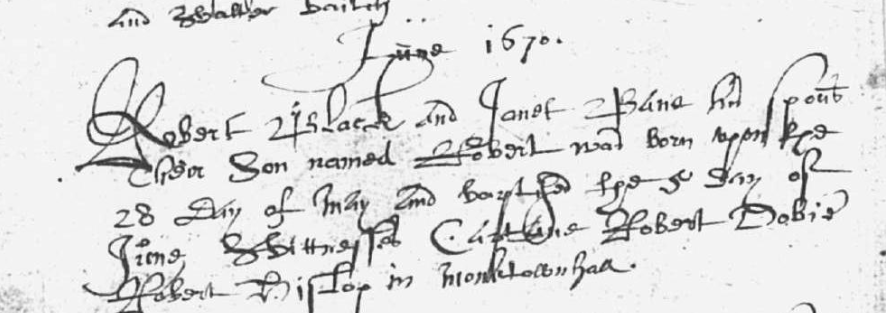 and Walter
June 1670.
Robert Black and Janet Bane his spous
their Son named Robert was born upon the
28 day of May and baptized the 5 day of
June Wittnesses Captane Robert Dobie
Robert Hislop in Monktownhall.